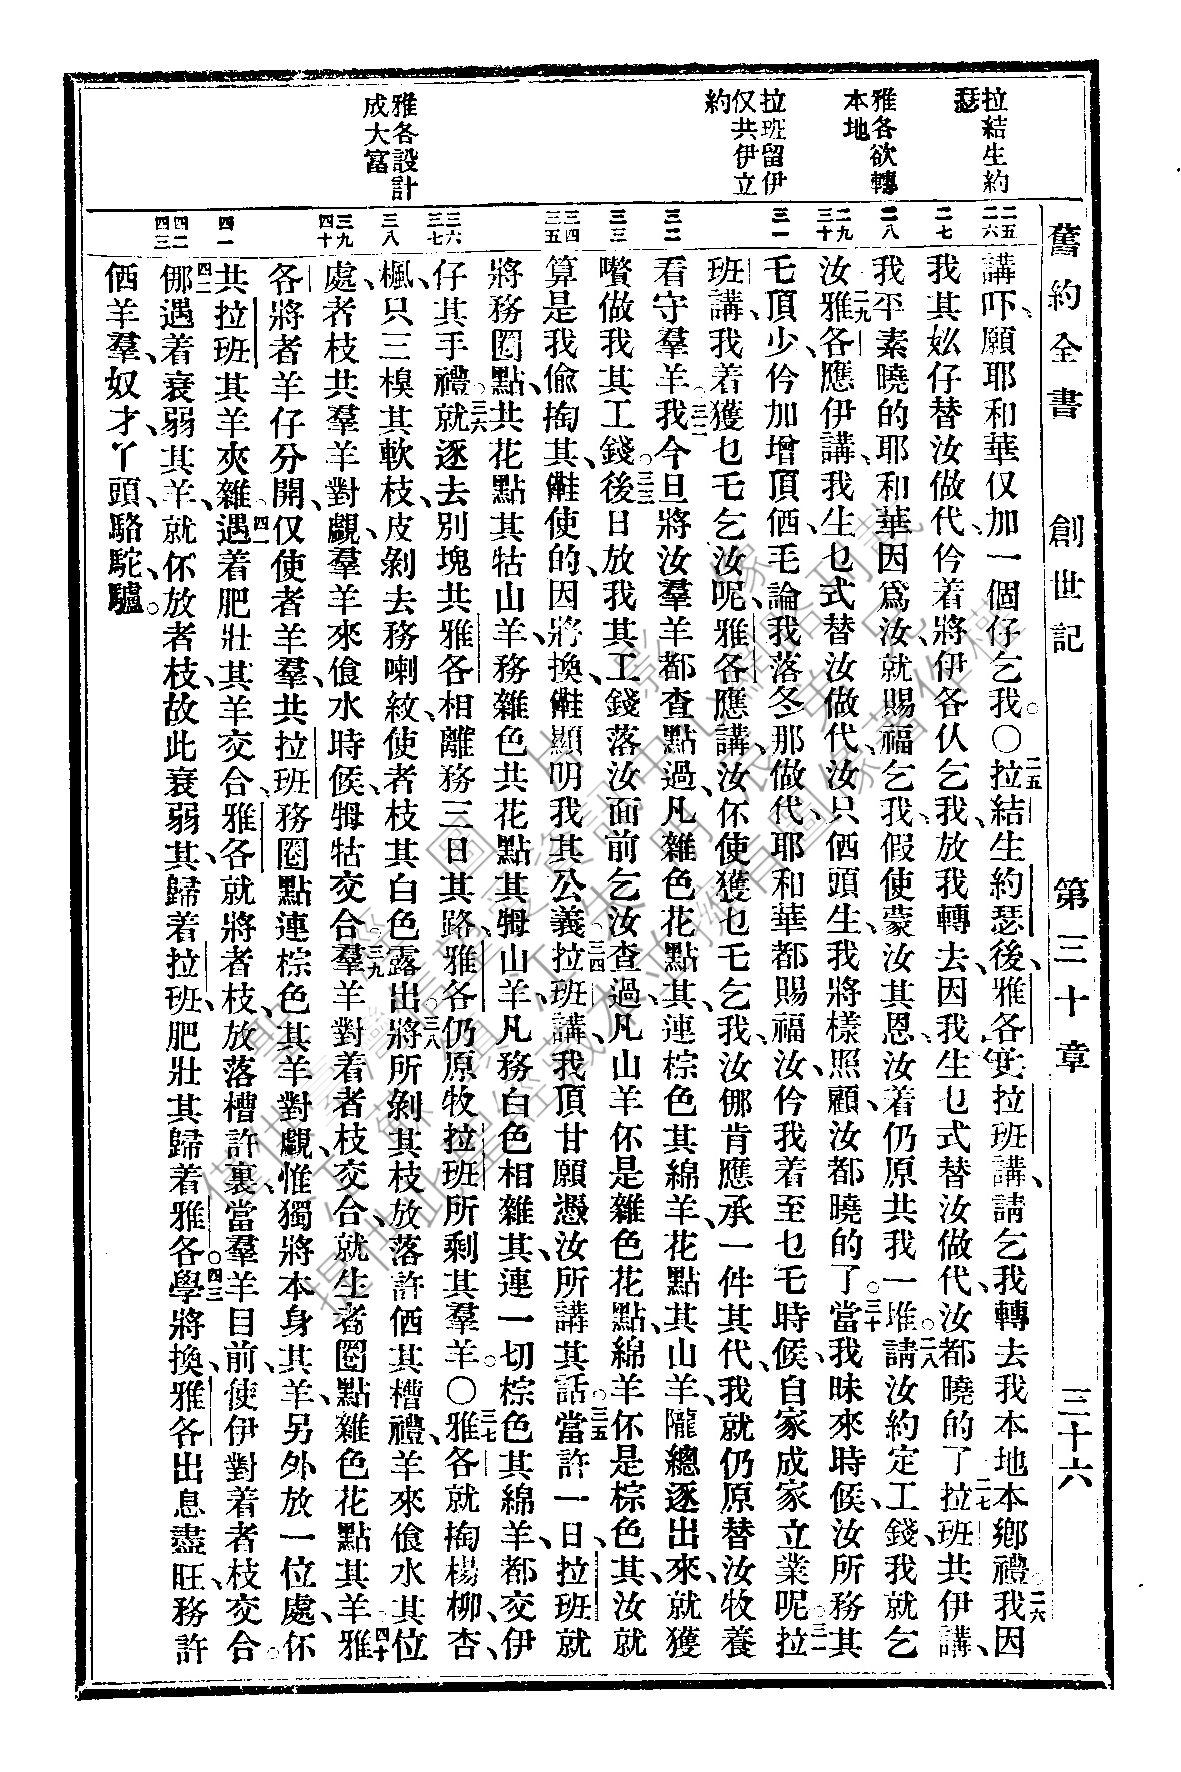 舊約全書 創世記 第三十章 三十六
拉結生約
瑟
雅各欲轉
本地
拉班留伊
仅共伊立
約
雅各設計
成大富
二五
二六
二七
二八
二九
三十
三一
三二
三三
三四
三五
三六
三七
三八
三九
四十
四一
四二
四三
講吓、願耶和華仅加一個仔乞我。〇二五拉結生約瑟後、雅各吏拉班講、請乞我轉去我本地本鄉禮、二六我因
我其奻仔替汝做代、仱着將伊各仈乞我、放我轉去、因我生乜式替汝做代、汝都曉的了。二七拉班共伊講、
我平素曉的耶和華因爲汝、就賜福乞我、假使蒙汝其恩、汝着仍原共我一堆。二八請汝約定工錢、我就乞
汝、二九雅各應伊講、我生乜式替汝做代、汝只偭頭生、我將樣照顧、汝都曉的了。三十當我昧來時候、汝所務其
乇頂少、仱加增頂偭、乇論我落冬那做代、耶和華都賜福汝、仱我着至乜乇時候、自家成家立業呢。三一拉
班講、我着獲乜乇乞汝呢、雅各應講、汝伓使獲乜乇乞我、汝倻肯應承一件其代、我就仍原替汝牧養
看守羣羊、三二我今旦將汝羣羊都查點過、凡雜色花點其、連棕色其綿羊、花點其山羊、隴總逐出來、就獲
嚽做我其工錢。三三後日放我其工錢落汝面前、乞汝查過、凡山羊伓是雜色花點、綿羊伓是棕色其、汝就
算是我偷掏其、㑚使的、因將換㑚顯明我其公義。三四拉班講、我頂甘願憑汝所講其話。三五當許一日、拉班就
將務圈點共花點其牯山羊、務雜色共花點其𤘅山羊、凡務白色相雜其、連一切棕色其綿羊、都交伊
仔其手禮。三六就逐去別塊、共雅各相離務三日其路、雅各仍原牧拉班所剩其羣羊。〇三七雅各就掏楊柳、杏
楓、只三樣其軟枝、皮剝去務喇紋、使者枝其白色露出、三八將所剝其枝、放落許偭其槽禮、羊來飡水其位
處、者枝共羣羊對覷、羣羊來飡水時候、𤘅牯交合。三九羣羊對着者枝交合、就生者圈點雜色花點其羊、四十雅
各將者羊仔分開、仅使者羊羣、共拉班務圈點連棕色其羊對覷、惟獨將本身其羊、另外放一位處、伓
共拉班其羊夾雜。四一遇着肥壯其羊交合、雅各就將者枝、放落槽許裏、當羣羊目前、使伊對着者枝交合。
四二倻遇着衰弱其羊、就伓放者枝、故此衰弱其歸着拉班、肥壯其歸着雅各。四三學將換雅各出息盡旺、務許
偭羊羣、奴才、丫頭、駱駝、驢。